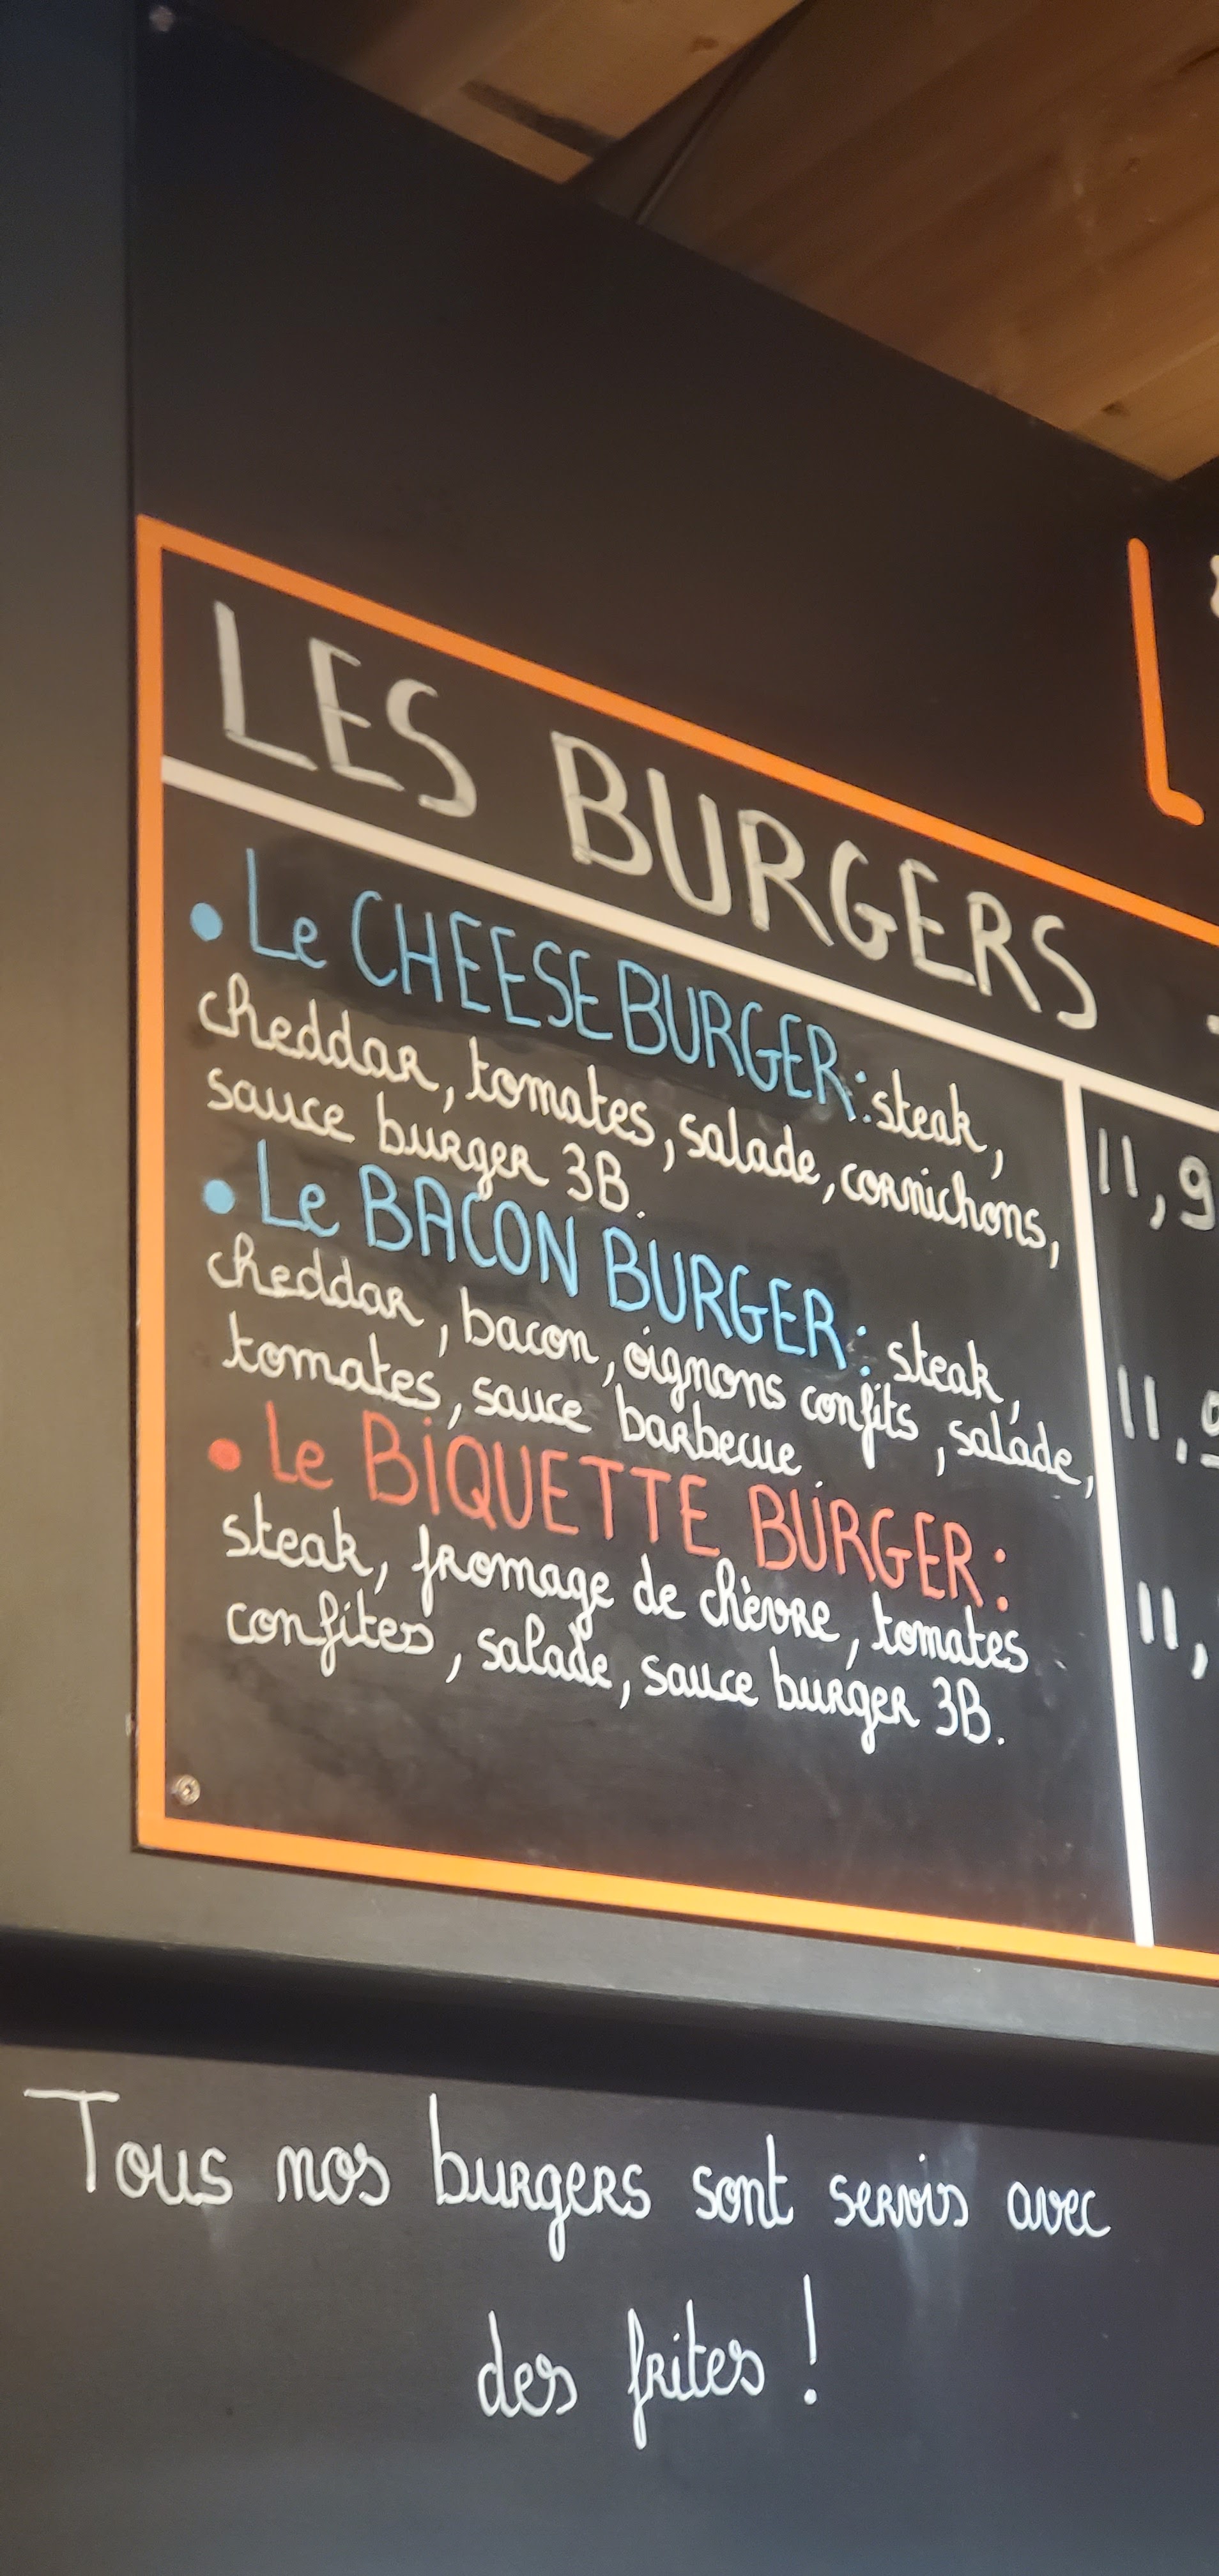 LES BURGERS
• Le CHEESE BURGER : steak,
cheddar, tomates, salade, cornichons,
sauce burger 3B.
11,9
• Le BACON BURGER : steak,
cheddar, bacon, oignons confits, salade,
tomates, sauce barbecue.
11,
• Le BIQUETTE BURGER :
steak, fromage de chèvre, tomates
confites, salade, sauce burger 3B.
11,
Tous nos burgers sont servis avec
des frites !